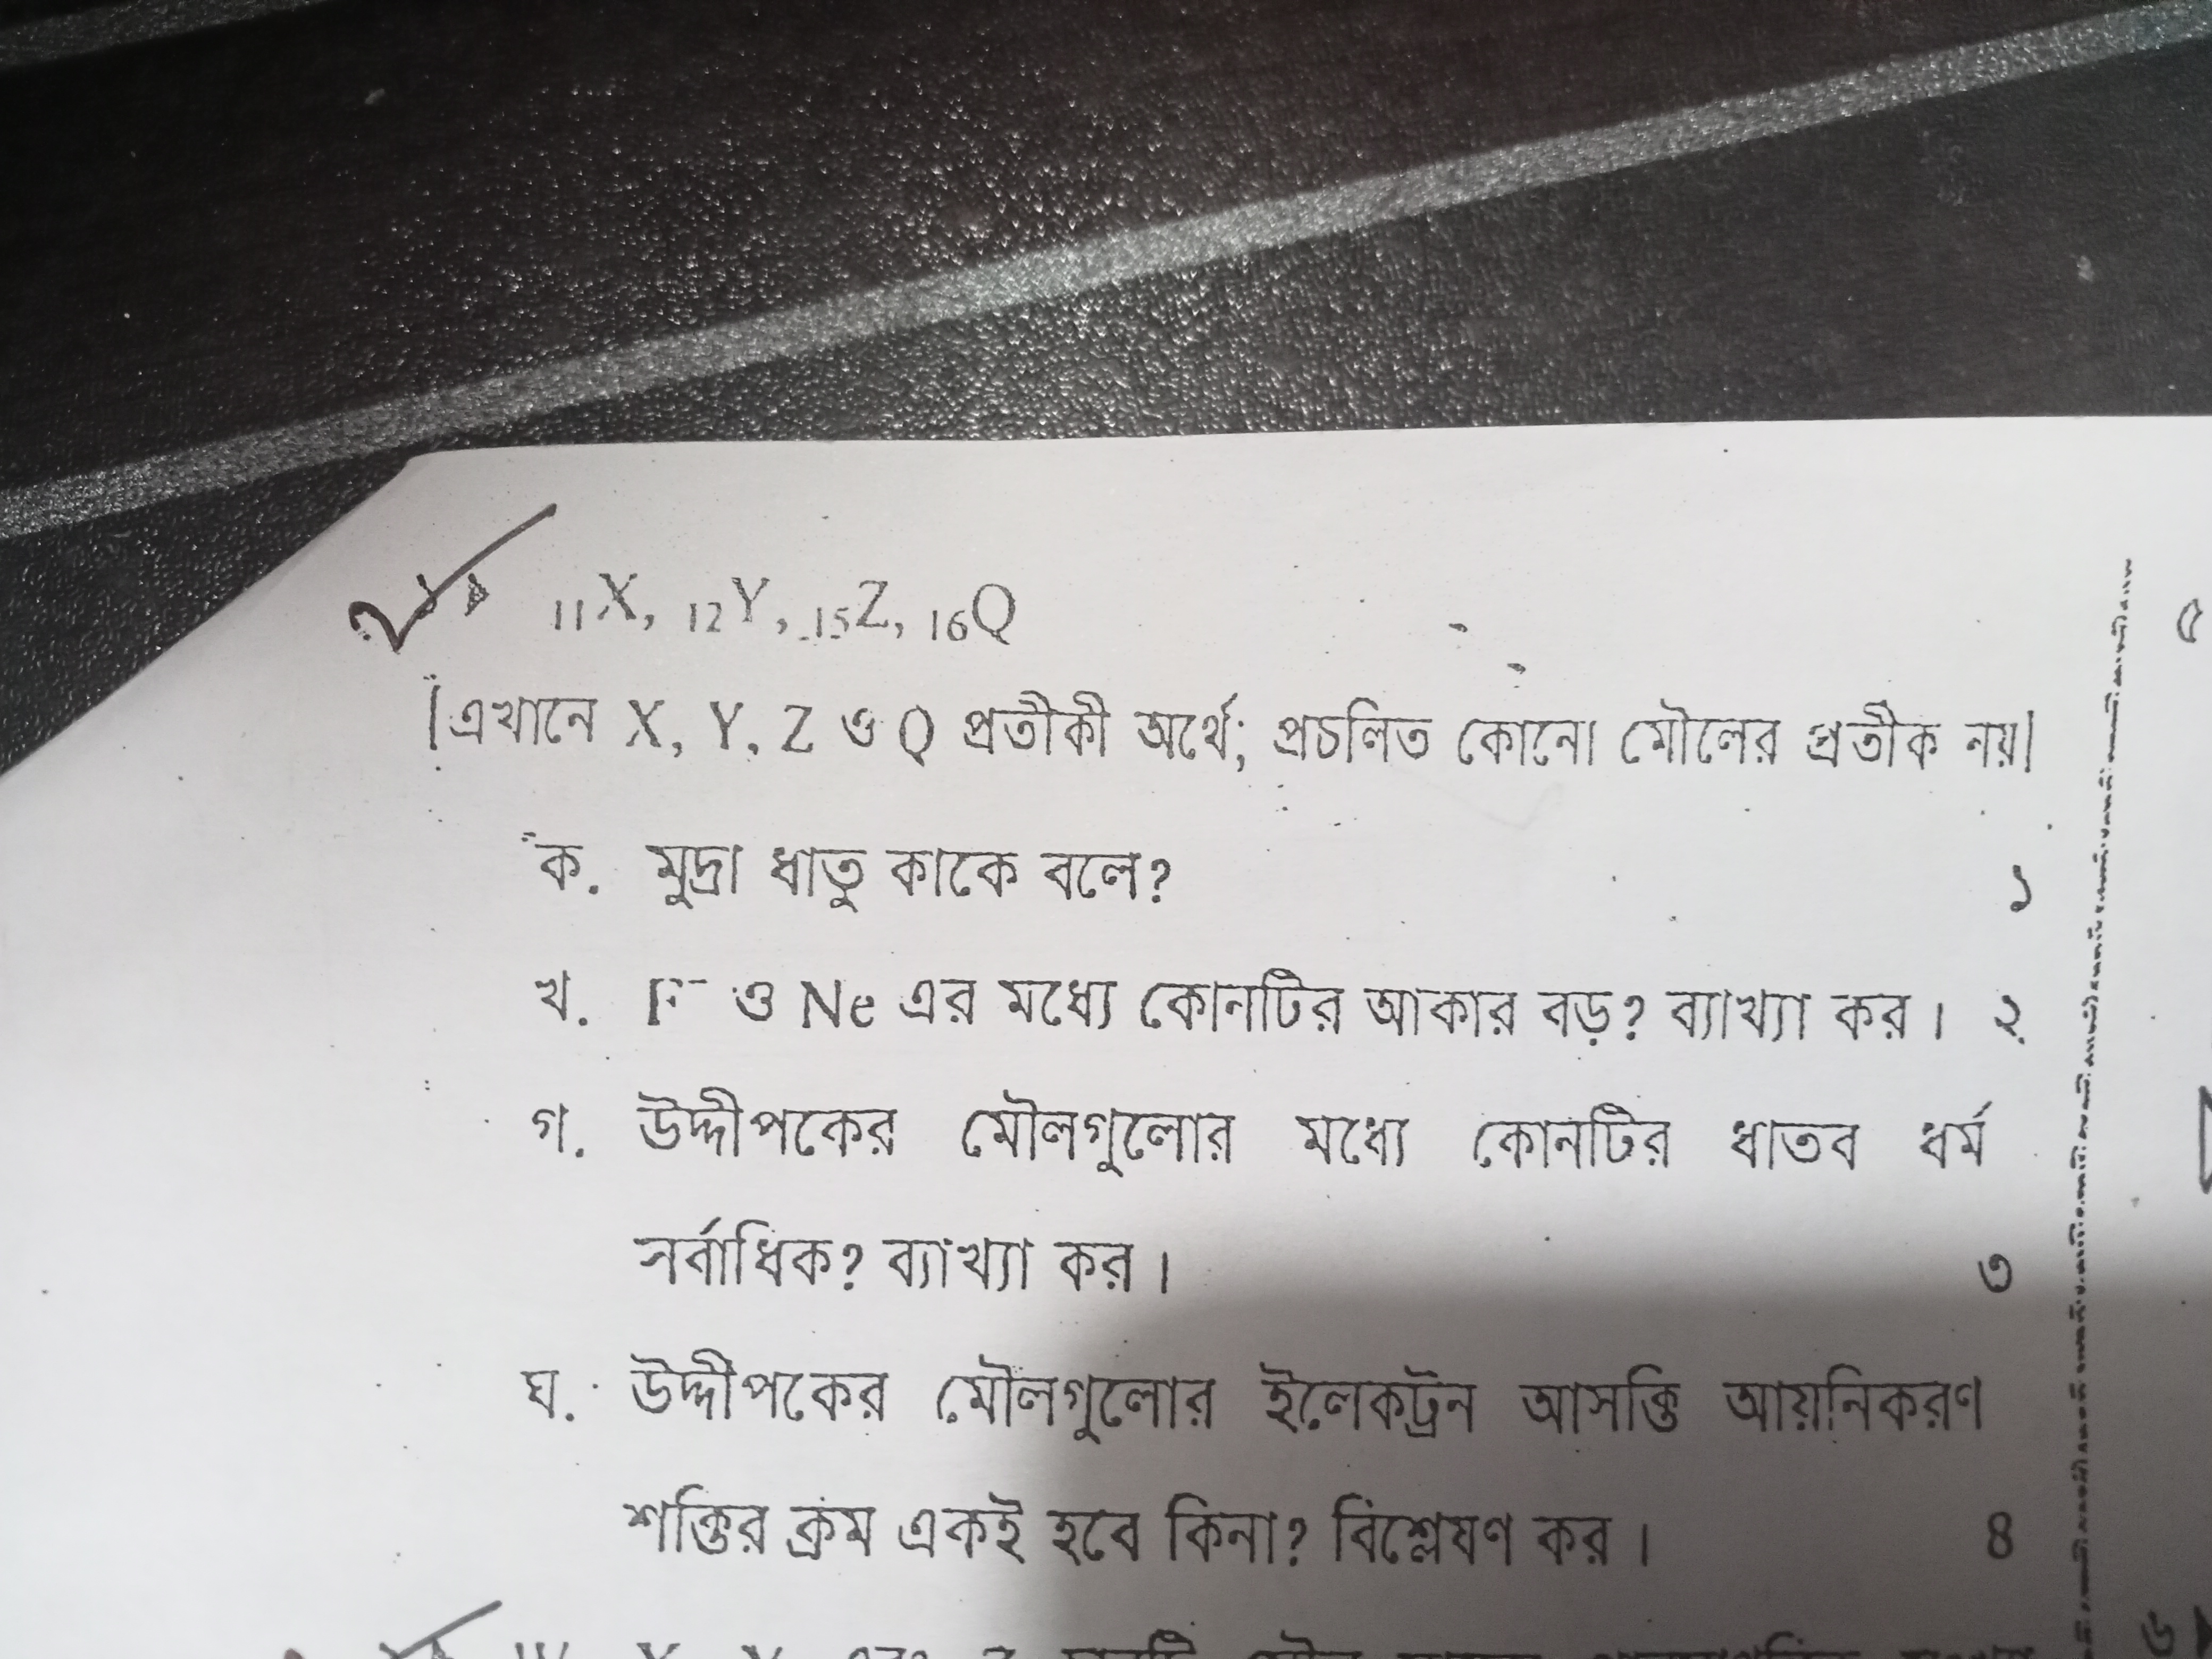 ₁₁X, ₁₂Y, ₁₅Z, ₁₆Q
৫
[এখানে X, Y, Z ও Q প্রতীকী অর্থে; প্রচলিত কোনো মৌলের প্রতীক নয়]
ক. মুদ্রা ধাতু কাকে বলে? ১
খ. F⁻ ও Ne এর মধ্যে কোনটির আকার বড়? ব্যাখ্যা কর। ২
গ. উদ্দীপকের মৌলগুলোর মধ্যে কোনটির ধাতব ধর্ম
সর্বাধিক? ব্যাখ্যা কর। ৩
ঘ. উদ্দীপকের মৌলগুলোর ইলেকট্রন আসক্তি আয়নিকরণ
শক্তির ক্রম একই হবে কিনা? বিশ্লেষণ কর। ৪
৬